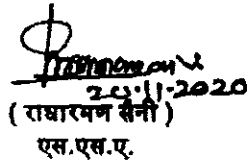 20.11.2020
( राधारमण सैनी )
एस.एस.ए.